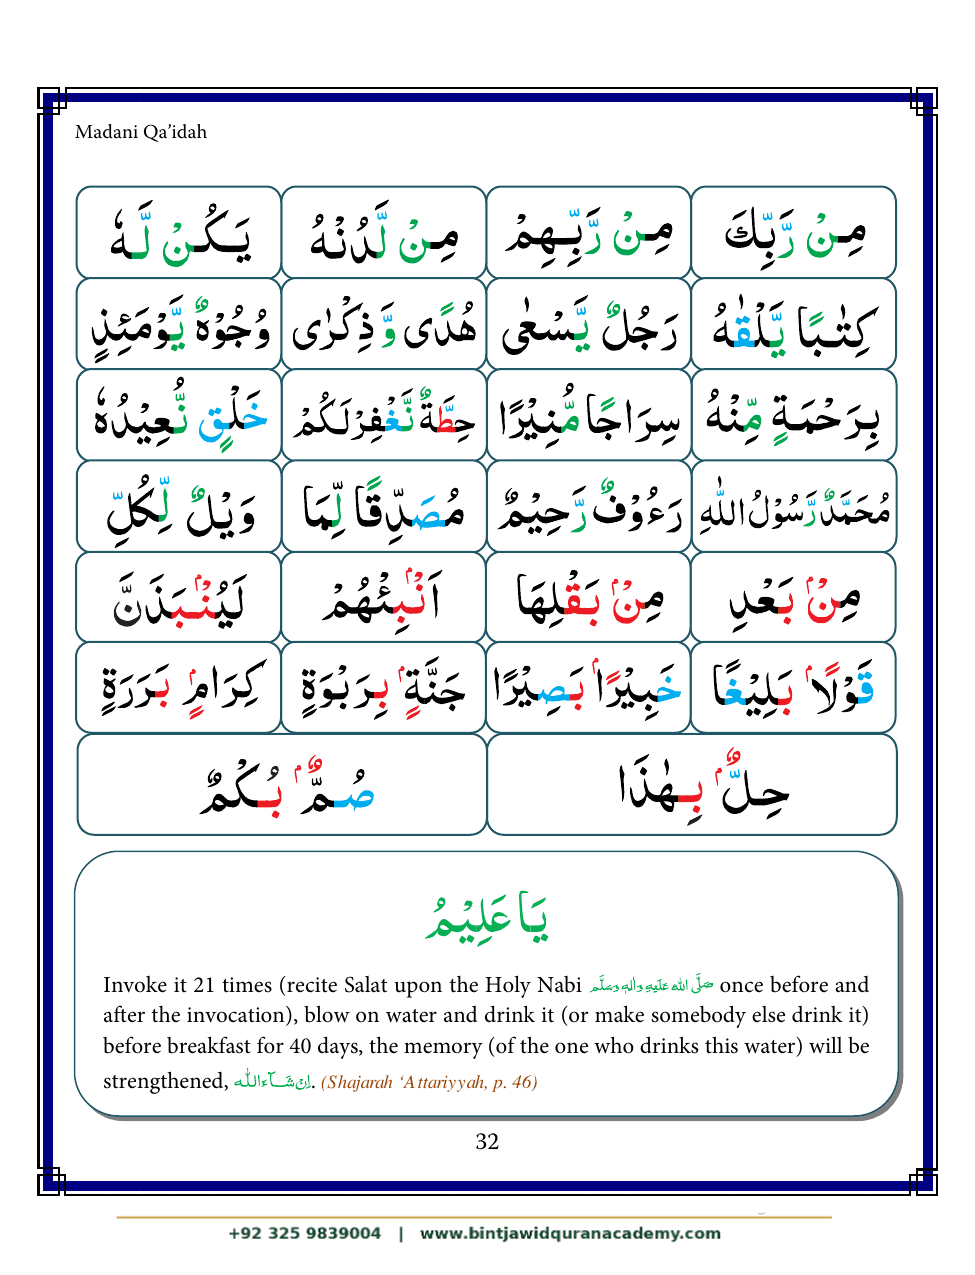 Madani Qa’idah
مِنْ رَّبِّكَ مِنْ رَّبِّهِمْ مِنْ لَّدُنْهُ يَكُنْ لَّهٗ
كِتٰبًا يَّلْقٰىهُ رَجُلٌ يَّسْعٰى هُدًى وَّذِكْرٰى وُجُوْهٌ يَّوْمَئِذٍ
بِرَحْمَةٍ مِّنْهُ سِرَاجًا مُّنِيْرًا حِطَّةٌ نَّغْفِرْلَكُمْ خَلْقٍ نُّعِيْدُهٗ
مُحَمَّدٌ رَّسُوْلُ اللّٰهِ رَءُوْفٌ رَّحِيْمٌ مُصَدِّقًا لِّمَا وَيْلٌ لِّكُلِّ
مِنْۢ بَعْدِ مِنْۢ بَقْلِهَا اَنْۢبِئْهُمْ لَيُنْۢبَذَنَّ
قَوْلًاۢ بَلِيْغًا خَبِيْرًاۢ بَصِيْرًا جَنَّةٍۢ بِرَبْوَةٍ كِرَامٍۢ بَرَرَةٍ
حِلٌّۢ بِهٰذَا صُمٌّۢ بُكْمٌ
يَا عَلِيْمُ
Invoke it 21 times (recite Salat upon the Holy Nabi صَلَّى اللہ عَلَيْهِ وَاٰلِهٖ وَسَلَّم once before and
after the invocation), blow on water and drink it (or make somebody else drink it)
before breakfast for 40 days, the memory (of the one who drinks this water) will be
strengthened, اِنْ شَآءَ اللّٰه. (Shajarah ‘Attariyyah, p. 46)
32
+92 325 9839004 | www.bintjawidquranacademy.com